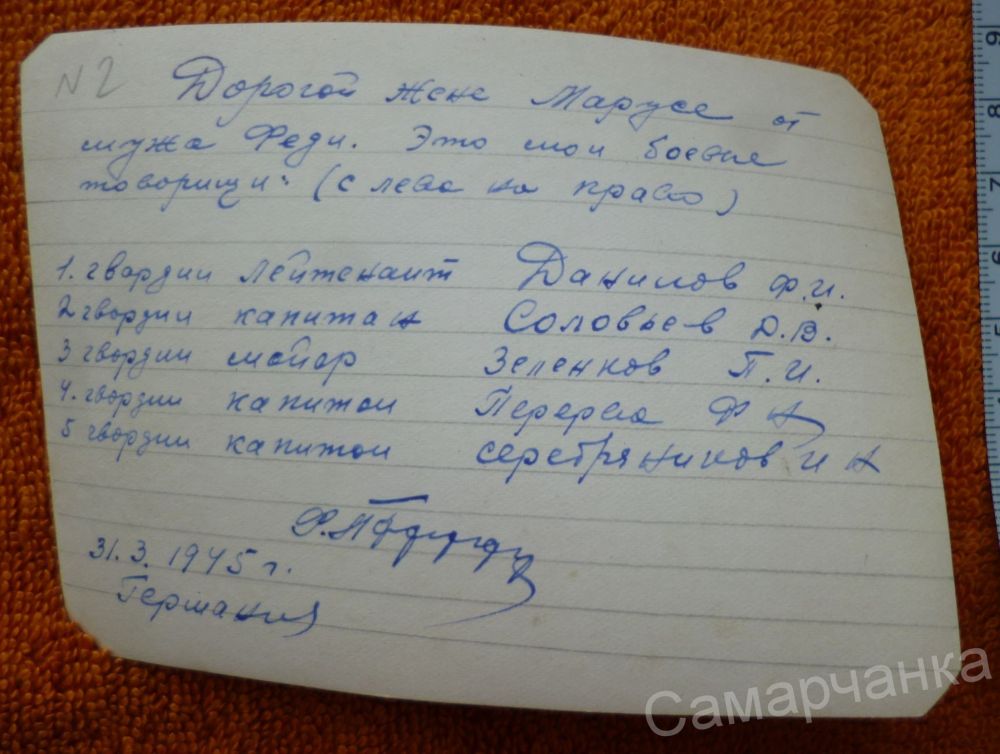 N 2
Дорогой жене Марусе от
мужа Феди. Это мои боевые
товарищи: (с лева на право)
1. гвардии лейтенант Данилов Ф.И.
2 гвардии капитан Соловьев Д.В.
3 гвардии майор Зеленков П.И.
4. гвардии капитан Перерва Ф Н
5 гвардии капитан Серебряников И Н
31.3.1945 г.
Германия
Самарчанка